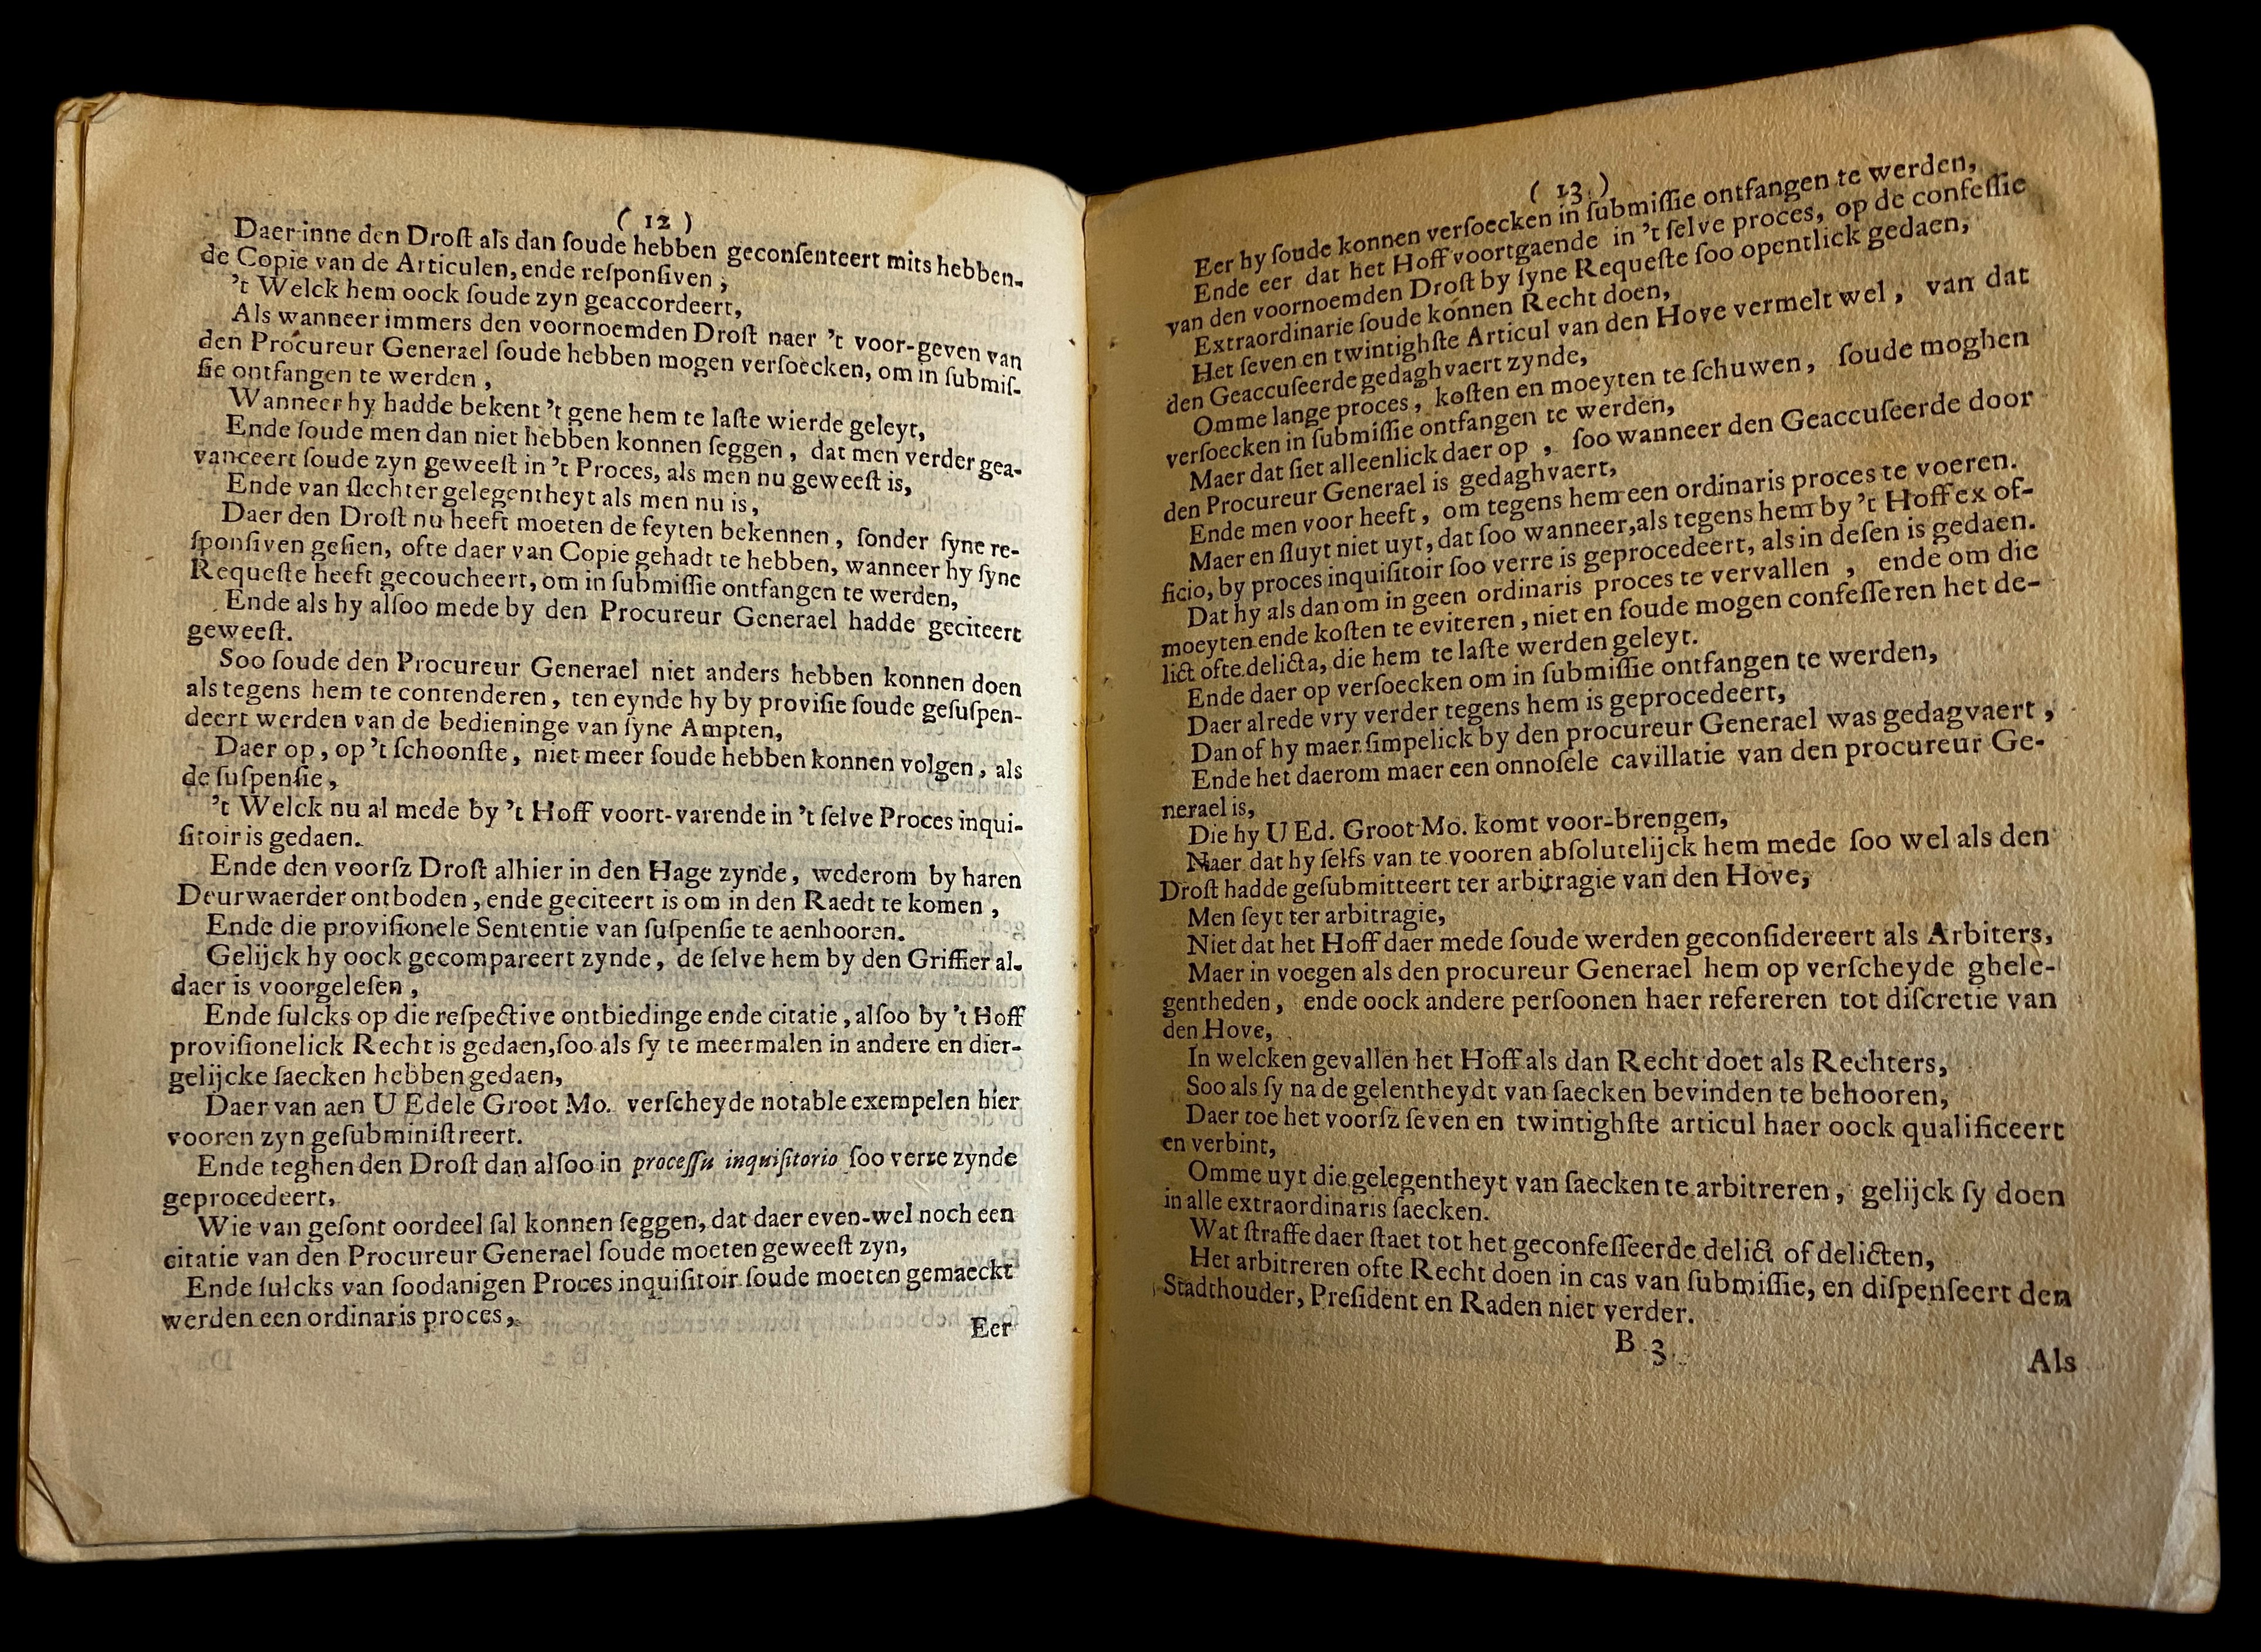 ( 12 )
Daer inne den Droſt als dan ſoude hebben geconſenteert mits hebben-
de Copie van de Articulen, ende reſponſiven ,
't Welck hem oock ſoude zyn geaccordeert,
Als wanneer immers den voornoemden Droſt naer 't voor-geven van
den Procureur Generael ſoude hebben mogen verſoecken, om in ſubmiſ-
ſie ontfangen te werden ,
Wanneer hy hadde bekent 't gene hem te laſte wierde geleyt,
Ende ſoude men dan niet hebben konnen ſeggen , dat men verder gea-
vanceert ſoude zyn geweeſt in 't Proces, als men nu geweeſt is,
Ende van ſlechter gelegentheyt als men nu is ,
Daer den Droſt nu heeft moeten de feyten bekennen , ſonder ſyne re-
ſponſiven geſien, ofte daer van Copie gehadt te hebben, wanneer hy ſyne
Requeſte heeft gecoucheert, om in ſubmiſſie ontfangen te werden,
Ende als hy alſoo mede by den Procureur Generael hadde geciteert
geweeſt.
Soo ſoude den Procureur Generael niet anders hebben konnen doen
als tegens hem te contenderen , ten eynde hy by proviſie ſoude geſuſpen-
deert werden van de bedieninge van ſyne Ampten,
Daer op, op 't ſchoonſte, niet meer ſoude hebben konnen volgen , als
de ſuſpenſie ,
't Welck nu al mede by 't Hoff voort-varende in 't ſelve Proces inqui-
ſitoir is gedaen.
Ende den voorſz Droſt alhier in den Hage zynde, wederom by haren
Deurwaerder ontboden , ende geciteert is om in den Raedt te komen ,
Ende die proviſionele Sententie van ſuſpenſie te aenhooren.
Gelijck hy oock gecompareert zynde, de ſelve hem by den Griffier al-
daer is voorgeleſen ,
Ende ſulcks op die reſpective ontbiedinge ende citatie , alſoo by 't Hoff
proviſionelick Recht is gedaen, ſoo als ſy te meermalen in andere en dier-
gelijcke ſaecken hebben gedaen,
Daer van aen U Edele Groot Mo. verſcheyde notable exempelen hier
vooren zyn geſubminiſtreert.
Ende teghen den Droſt dan alſoo in proceſſu inquiſitorio ſoo verre zynde
geprocedeert,
Wie van geſont oordeel ſal konnen ſeggen, dat daer even-wel noch een
citatie van den Procureur Generael ſoude moeten geweeſt zyn,
Ende ſulcks van ſoodanigen Proces inquiſitoir ſoude moeten gemaeckt
werden een ordinaris proces ,
Eer
( 13 )
Eer hy ſoude konnen verſoecken in ſubmiſſie ontfangen te werden,
Ende eer dat het Hoff voortgaende in 't ſelve proces, op de confeſſie
van den voornoemden Droſt by ſyne Requeſte ſoo opentlick gedaen,
Extraordinarie ſoude konnen Recht doen,
Het ſeven en twintighſte Articul van den Hove vermelt wel , van dat
den Geaccuſeerde gedaghvaert zynde,
Omme lange proces, koſten en moeyten te ſchuwen, ſoude moghen
verſoecken in ſubmiſſie ontfangen te werden,
Maer dat ſiet alleenlick daer op , ſoo wanneer den Geaccuſeerde door
den Procureur Generael is gedaghvaert,
Ende men voor heeft, om tegens hem een ordinaris proces te voeren.
Maer en ſluyt niet uyt, dat ſoo wanneer, als tegens hem by 't Hoff ex of-
ficio, by proces inquiſitoir ſoo verre is geprocedeert, als in deſen is gedaen.
Dat hy als dan om in geen ordinaris proces te vervallen , ende om die
moeyten ende koſten te eviteren , niet en ſoude mogen confeſſeren het de-
lict ofte delicta, die hem te laſte werden geleyt.
Ende daer op verſoecken om in ſubmiſſie ontfangen te werden,
Daer alrede vry verder tegens hem is geprocedeert,
Dan of hy maer ſimpelick by den procureur Generael was gedagvaert ,
Ende het daerom maer een onnoſele cavillatie van den procureur Ge-
nerael is,
Die hy U Ed. Groot Mo. komt voor-brengen,
Naer dat hy ſelfs van te vooren abſolutelijck hem mede ſoo wel als den
Droſt hadde geſubmitteert ter arbitragie van den Hove,
Men ſeyt ter arbitragie,
Niet dat het Hoff daer mede ſoude werden geconſidereert als Arbiters,
Maer in voegen als den procureur Generael hem op verſcheyde ghele-
gentheden, ende oock andere perſoonen haer refereren tot diſcretie van
den Hove,
In welcken gevallen het Hoff als dan Recht doet als Rechters,
Soo als ſy na de gelentheydt van ſaecken bevinden te behooren,
Daer toe het voorſz ſeven en twintighſte articul haer oock qualificeert
en verbint,
Omme uyt die gelegentheyt van ſaecken te arbitreren , gelijck ſy doen
in alle extraordinaris ſaecken.
Wat ſtraffe daer ſtaet tot het geconfeſſeerde delict of delicten,
Het arbitreren ofte Recht doen in cas van ſubmiſſie, en diſpenſeert den
Stadthouder, Preſident en Raden niet verder.
B 3
Als